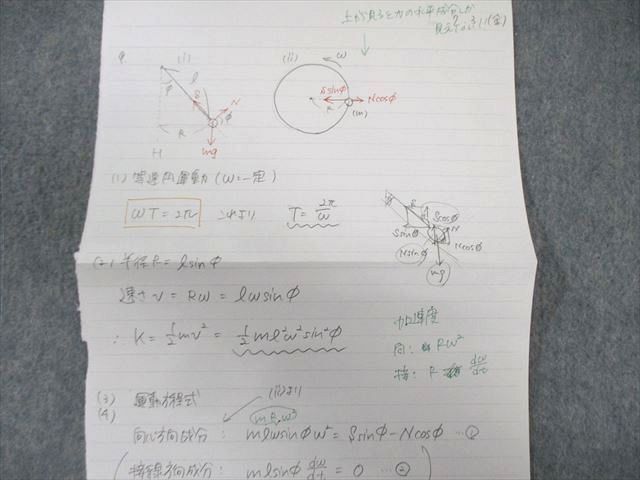 上から見ると力の水平成分しか
見えない
(i)
φ
l
S
N
φ
R
H
mg
(ii)
ω
Ssinφ
Ncosφ
R
(m)
(1) 等速円運動 (ω=一定)
ωT = 2π これより T = 2π/ω
S
Scosφ
Ssinφ
N
Ncosφ
Nsinφ
mg
(2) 半径R = lsinφ
速さv = Rω = lωsinφ
∴ K = 1/2 mv² = 1/2 ml²ω²sin²φ
加速度
向: Rω²
接: R dω/dt
(3) 運動方程式 (ii)より
(4)
mRω²
向心方向成分: mlsinφω² = Ssinφ - Ncosφ …①
接線方向成分: mlsinφ dω/dt = 0 …②